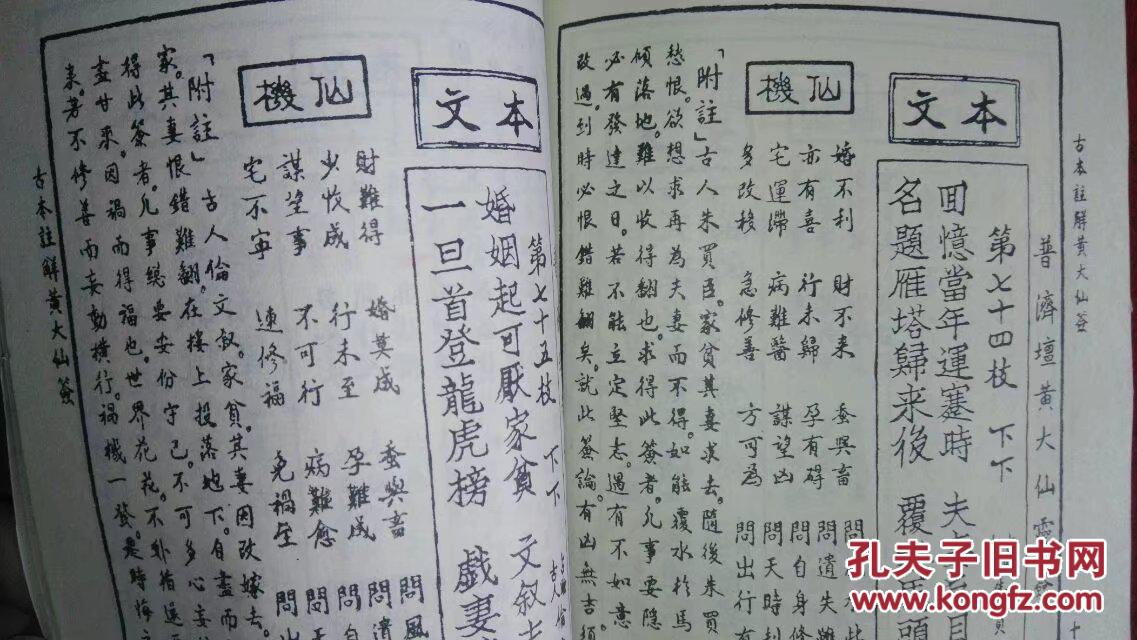 古本註解黃大仙簽
普濟壇黃大仙靈
本文
第七十四枝 下下
回憶當年運蹇時 夫
名題雁塔歸来後 覆
仙機
婚不利 財不来 蚕與畜 問
亦有喜 行未歸 孕有碍 問遺失
宅運滯 病難醫 謀望凶 問自身
多改移 急修善 方可為 問天時
問出行
「附註」古人朱買臣。家貧其妻求去。隨後朱買
愁恨。欲想求再為夫妻而不得。如能覆水於馬
傾落地。難以收得翻也。求得此簽者。凡事要隱
必有發達之日。若不能立定堅志。過有不如意
改過。到時必恨錯難翻矣。就此簽論。有凶無吉須
本文
第七十五枝 下下
婚姻起可厭家貧 文叙
一旦首登龍虎榜 戲妻
仙機
財難得 婚莫成 蚕與畜 問風
少收成 行未至 孕難成 問
謀望事 不可行 病難愈 問自
宅不寧 速修福 免禍 問
「附註」古人倫文叙。家貧。其妻因改嫁去。
家。其妻恨錯難翻。在樓上投落地下。自盡而
得此簽者。凡事總要安份守己。不可多心妄
盡甘來。因禍而得福也。世界花花。不
来。若不修善而妄動橫行。禍機一發。是時悔
古本註解黃大仙簽
孔夫子旧书网
www.kongfz.com